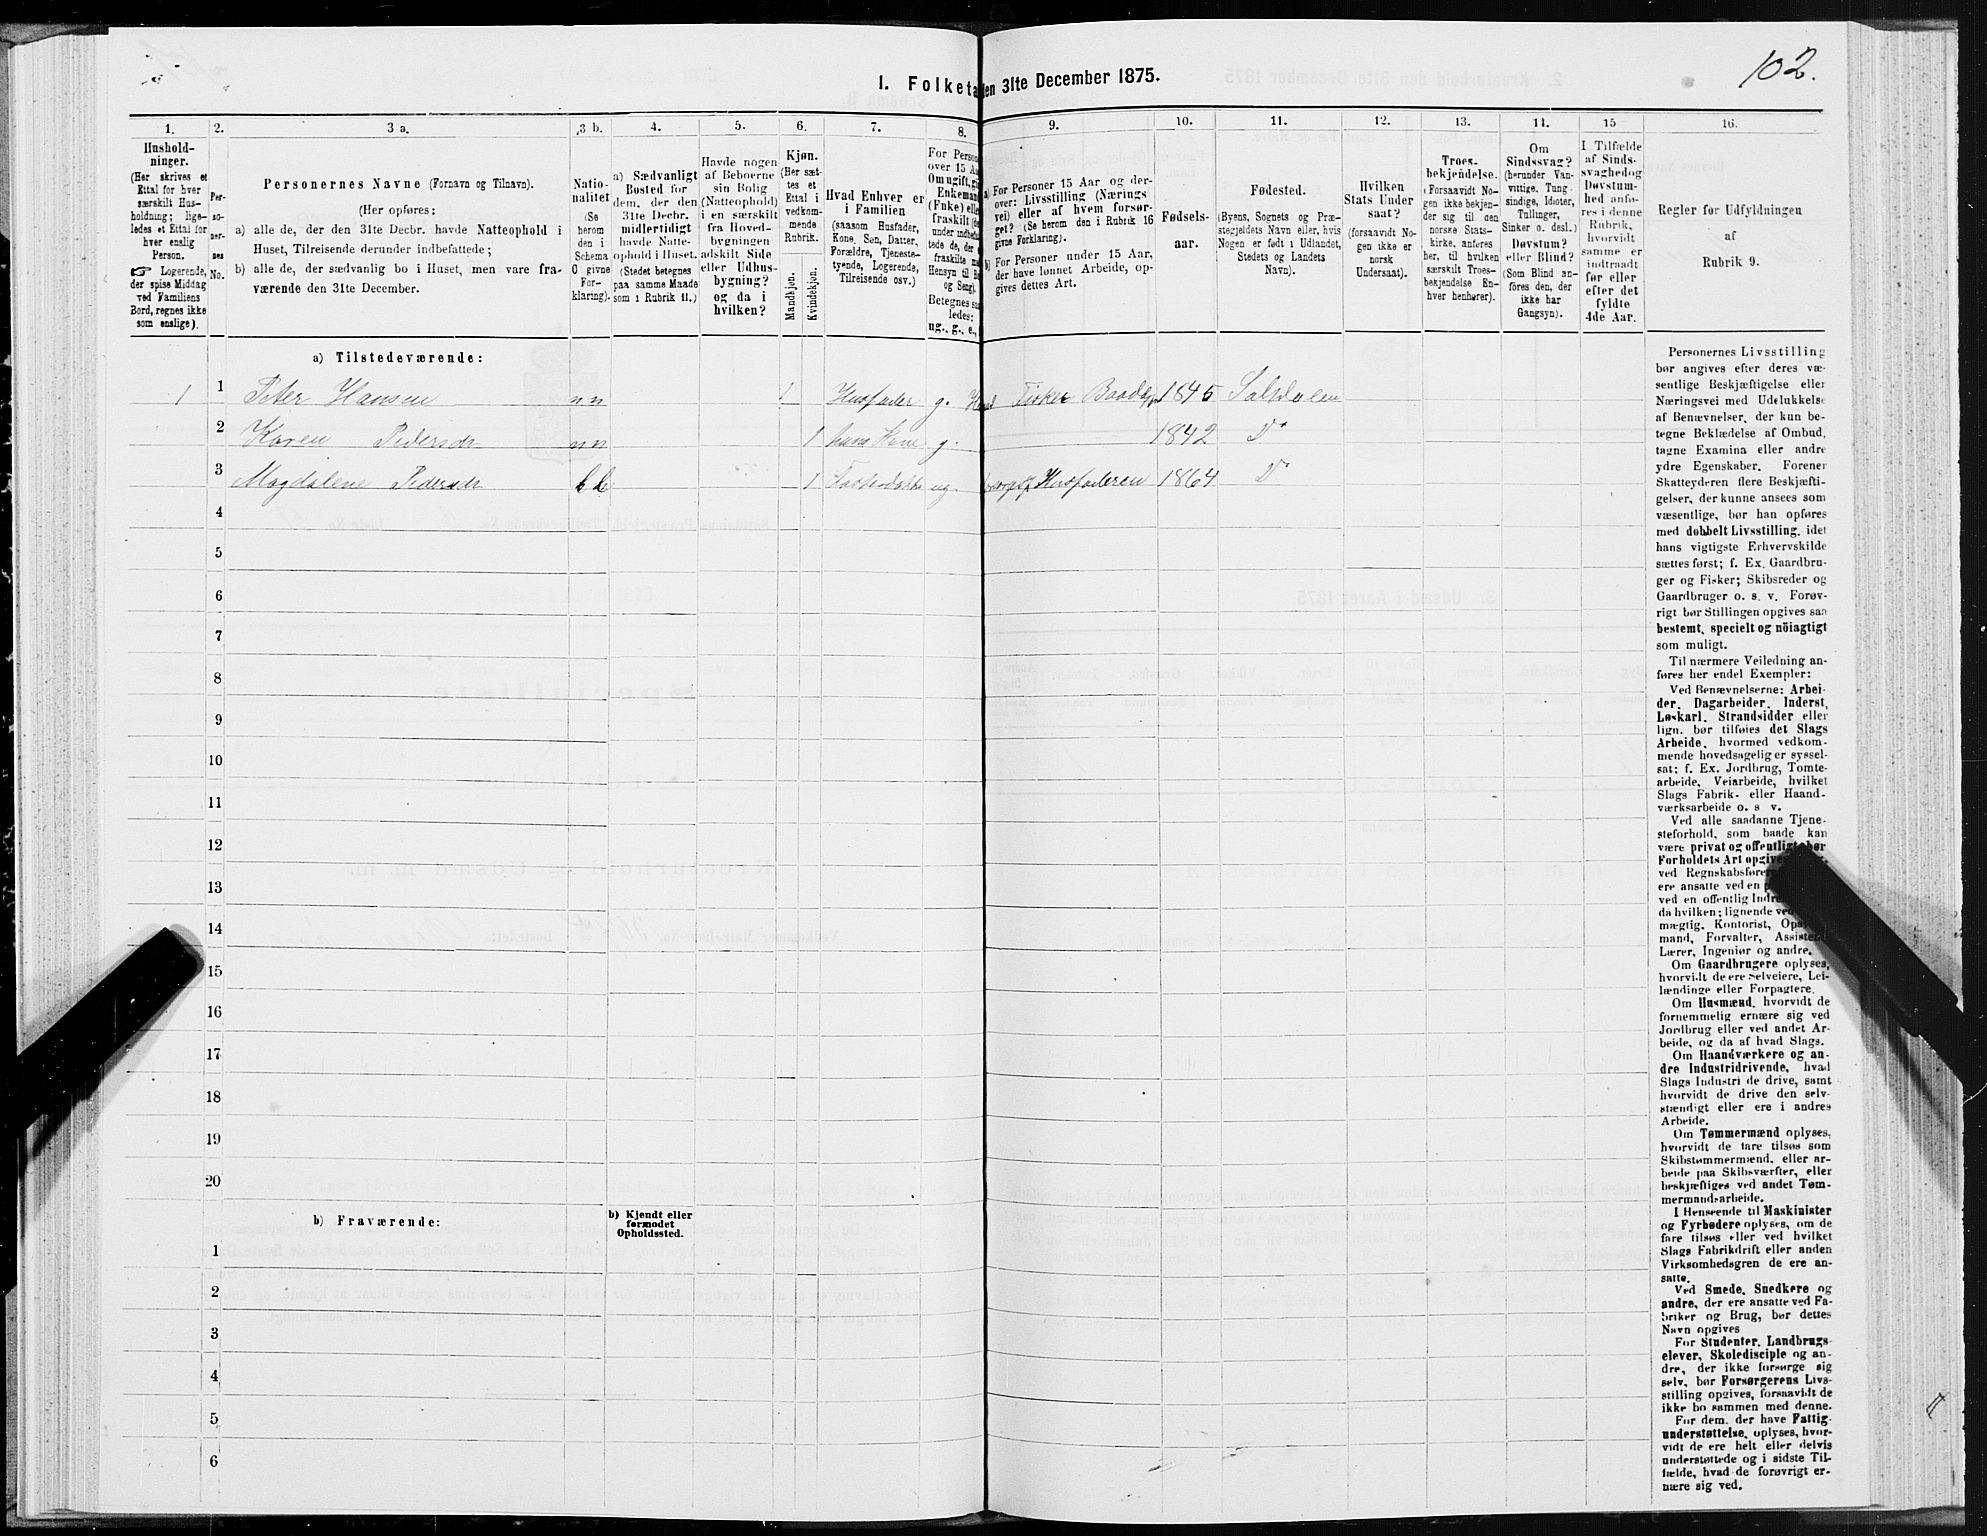 102.
I. Folketa
den 31te December 1875.
1.
Hushold-
ninger.
(Her skrives et
Ettal for hver
særskilt Hus-
holdning; lige-
ledes et Ettal for
hver enslig
Person.
☞ Logerende,
der spise Middag
ved Familiens
Bord, regnes ikke
som enslige).
2.
Per-
so-
ner-
nes
No.
3 a.
Personernes Navne (Fornavn og Tilnavn).
(Her opføres:
a) alle de, der den 31te Decbr. havde Natteophold i
Huset, Tilreisende derunder indbefattede;
b) alle de, der sædvanlig bo i Huset, men vare fra-
værende den 31te December.
3 b.
Natio-
nalitet
(Se
herom
den i
Schema
O givne
For-
klaring).
4.
a) Sædvanligt
Bosted for
dem, der den
31te Decbr.
midlertidigt
havde Natte-
ophold i Huset.
(Stedet betegnes
paa samme Maade
som i Rubrik 11.)
5.
Havde nogen
af Beboerne
sin Bolig
(Natteophold)
i en særskilt
fra Hoved-
bygningen
adskilt Side
eller Udhus-
bygning?
og da i
hvilken?
6.
Kjøn.
(Her sæt-
tes et
Ettal i
vedkom-
mende
Rubrik.
Mandkjøn.
Kvindekjøn.
7.
Hvad Enhver er
i Familien
(saasom Husfader,
Kone, Søn, Datter,
Forældre, Tjeneste-
tyende, Logerende,
Tilreisende osv.)
8.
For Person
over 15 Aar
Om ugift, gif
Enkemand
(Enke) elle
fraskilt (de
under indbefat-
tede de, der e
fraskilte med
Hensyn til Bo
og Seng).
Betegnes saa
ledes:
ug., g., e.,
9.
a) For Personer 15 Aar og der-
over: Livsstilling (Nærings-
vei) eller af hvem forsør-
get? (Se herom den i Rubrik 16
givne Forklaring).
b) For Personer under 15 Aar,
der have lønnet Arbeide, op-
gives dettes Art.
10.
Fødsels-
aar.
11.
Fødested.
(Byens, Sognets og Præ-
stegjeldets Navn eller, hvis
Nogen er født i Udlandet,
Stedets og Landets
Navn).
12.
Hvilken
Stats Under
saat?
(forsaavidt No-
gen ikke er
norsk
Undersaat).
13.
Troes-
bekjendelse.
(Forsaavidt No-
gen ikke bekjen-
der sig til den
norske Stats-
kirke, anføres
her, til hvilken
særskilt Troes-
bekjendelse En-
hver henhører).
14.
Om
Sindssvag?
(herunder Van-
vittige, Tung-
sindige, Idioter,
Tullinger,
Sinker o. desl.)
Døvstum?
eller Blind?
(Som Blind an-
føres den, der
ikke har
Gangsyn).
15
I Tilfælde
af Sinds-
svaghed og
Døvstum-
hed anfø-
res i denne
Rubrik,
hvorvidt
samme er
indtraadt
før eller
efter det
fyldte
4de Aar.
16.
Regler for Udfyldningen
af
Rubrik 9.
a) Tilstedeværende:
1 1 Peter Hansen nn 1 Husfader g. Fisker 1845 Saltdalen
2 Karen Pedersdr nn 1 hans Kone g. 1842 Do
3 Magdalene Pedersdr 1 ug. Husfaderen 1864 Do
4
5
6
7
8
9
10
11
12
13
14
15
16
17
18
19
20
b) Fraværende:
b) Kjendt eller
formodet
Opholdssted.
1
2
3
4
5
6
Personernes Livsstilling
bør angives efter deres væ-
sentlige Beskjæftigelse eller
Næringsvei med Udelukkelse
af Benævnelser, der kun be-
tegne Beklædelse af Ombud,
tagne Examina eller andre
ydre Egenskaber. Forener
Skatteyderen flere Beskjæfti-
gelser, der kunne ansees som
væsentlige, bør han opføres
med dobbelt Livsstilling, idet
hans vigtigste Erhvervskilde
sættes først; f. Ex. Gaardbru-
ger og Fisker; Skibsreder og
Gaardbruger o. s. v. Forøv-
rigt bør Stillingen opgives saa
bestemt, specielt og nöiagtigt
som muligt.
Til nærmere Veiledning an-
føres her endel Exempler:
Ved Benævnelserne: Arbei-
der, Dagarbeider, Inderst,
Løskarl, Strandsidder eller
lign. bør tilføies det Slags
Arbeide, hvormed vedkom-
mende hovedsagelig er syssel-
sat; f. Ex. Jordbrug, Tomte-
arbeide, Veiarbeide, hvilket
Slags Fabrik- eller Haand-
værksarbeide o. s v.
Ved alle saadanne Tjene-
steforhold, som baade kan
være privat og offentligt, bør
Forholdets Art opgives,
ved Regnskabsfører
ere ansatte ved en
ved en offentlig Indre
da hvilken; lignende ved
mægtig, Kontorist, Ops
mand, Forvalter, Assistent
Lærer, Ingeniør og andre.
Om Gaardbrugere oplyses,
hvorvidt de ere Selveiere, Lei-
lændinge eller Forpagtere.
Om Husmænd, hvorvidt de
fornemmelig ernære sig ved
Jordbrug eller ved andet Ar-
beide, og da af hvad Slags.
Om Haandværkere og an-
dre Industridrivende, hvad
Slags Industri de drive, samt
hvorvidt de drive den selv-
stændigt eller ere i andres
Arbeide.
Om Tømmermænd oplyses,
hvorvidt de fare tilsøs som
Skibstømmermænd, eller ar-
beide paa Skibsværfter, eller
beskjæftiges ved andet Tøm-
mermandsarbeide.
I Henseende til Maskinister
og Fyrbødere oplyses, om de
fare tilsøs eller ved hvilket
Slags Fabrikdrift eller anden
Virksomhedsgren de ere an-
satte.
Ved Smede, Snedkere og
andre, der ere ansatte ved Fa-
briker og Brug, bør dettes
Navn opgives
For Studenter, Landbrugs-
elever, Skoledisciple og an-
dre, der ikke forsørge sig
selv, bør Forsørgerens Livs-
stilling opgives, forsaavidt de
ikke bo sammen med denne.
For dem, der have Fattig-
understøttelse, oplyses, hvor-
vidt de ere helt eller delvis
understøttede og i sidste Til-
fælde, hvad de forøvrigt er-
nære sig ved.